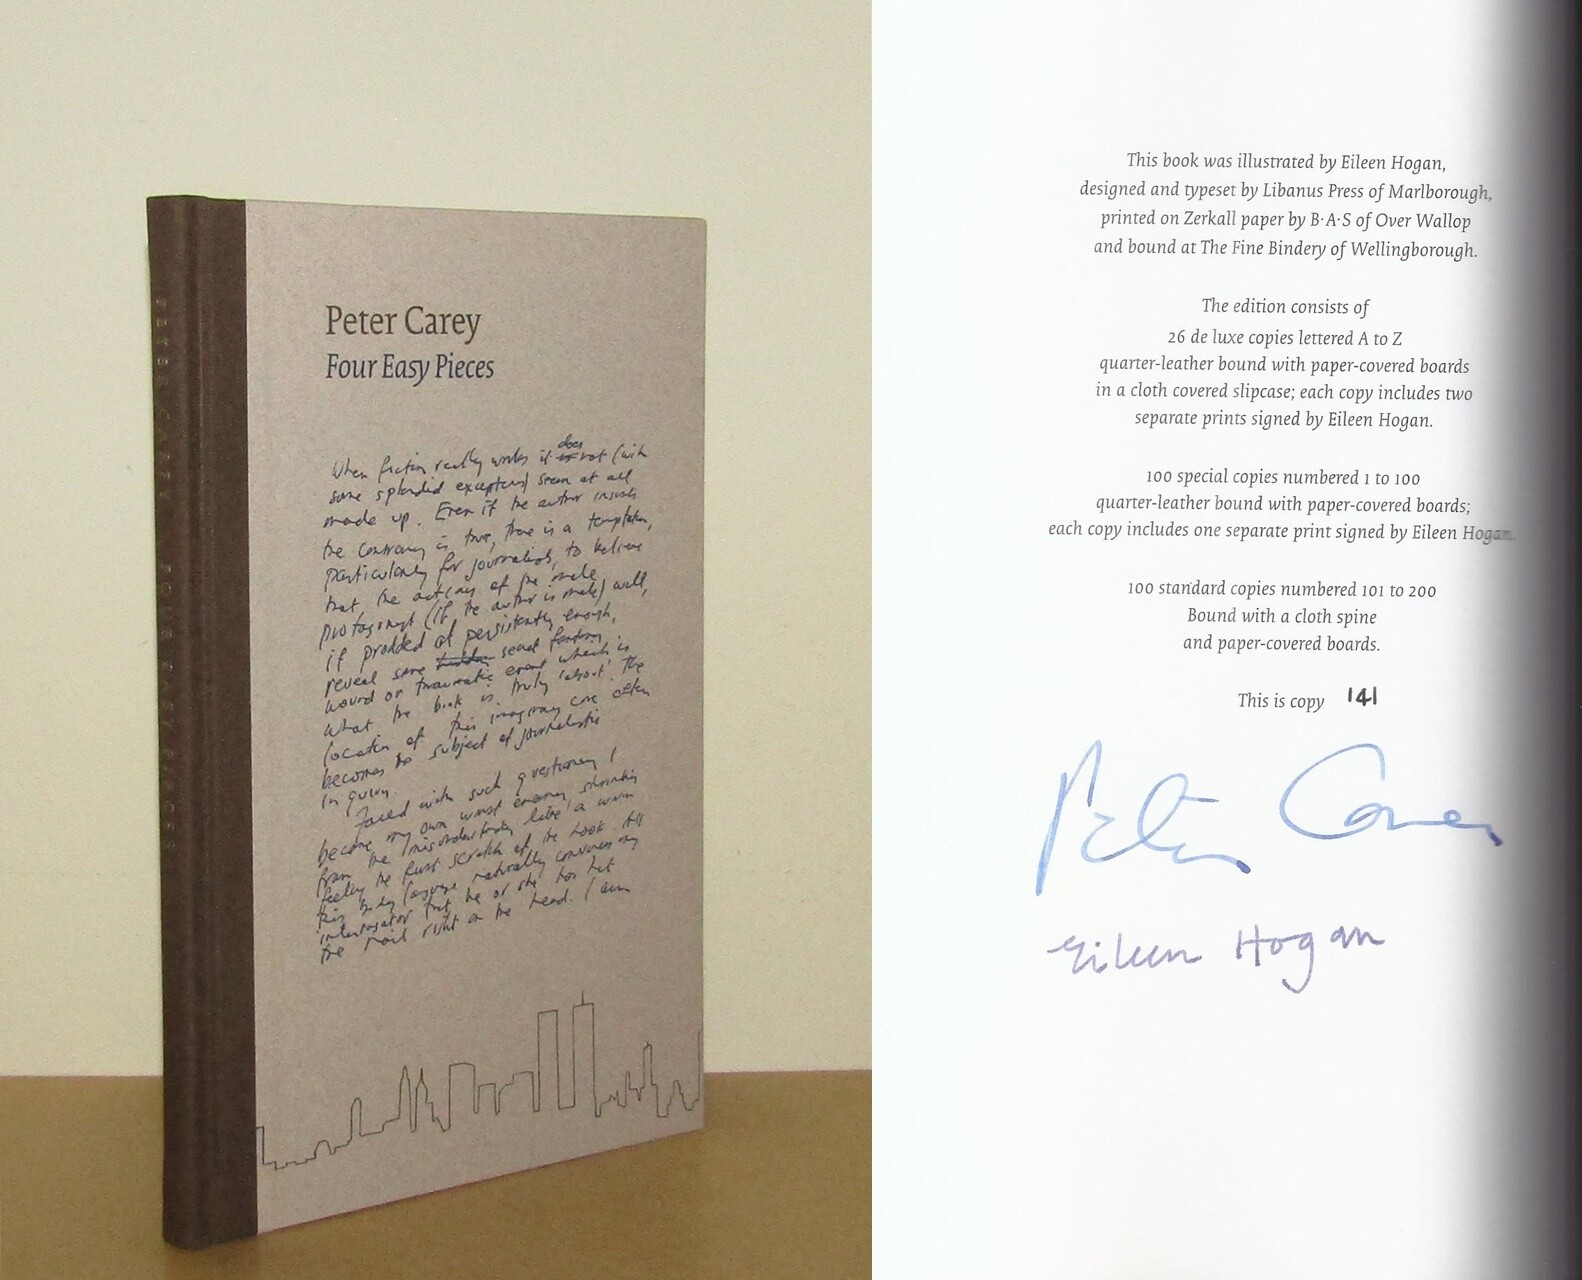 PETER CAREY FOUR EASY PIECES
Peter Carey
Four Easy Pieces
When fiction really works it does not (with
some splendid exceptions) seem at all
made up. Even if the author insists
the contrary is true, there is a temptation,
particularly for journalists, to believe
that the actions of the male
protagonist (if the author is male) will,
if prodded at persistently enough,
reveal some hidden secret
wound or traumatic event which is
what the book is truly 'about'. The
location of this imaginary core often
becomes the subject of journalistic
inquiry.
Faced with such questioning I
become my own worst enemy shrinking
from the misunderstanding like a worm
feeling the first scratch of the hook. All
this body language naturally convinces my
interrogator that he or she has hit
the nail right on the head. I am
This book was illustrated by Eileen Hogan,
designed and typeset by Libanus Press of Marlborough,
printed on Zerkall paper by B·A·S of Over Wallop
and bound at The Fine Bindery of Wellingborough.
The edition consists of
26 de luxe copies lettered A to Z
quarter-leather bound with paper-covered boards
in a cloth covered slipcase; each copy includes two
separate prints signed by Eileen Hogan.
100 special copies numbered 1 to 100
quarter-leather bound with paper-covered boards;
each copy includes one separate print signed by Eileen Hogan.
100 standard copies numbered 101 to 200
Bound with a cloth spine
and paper-covered boards.
This is copy 141
Peter Carey
Eileen Hogan